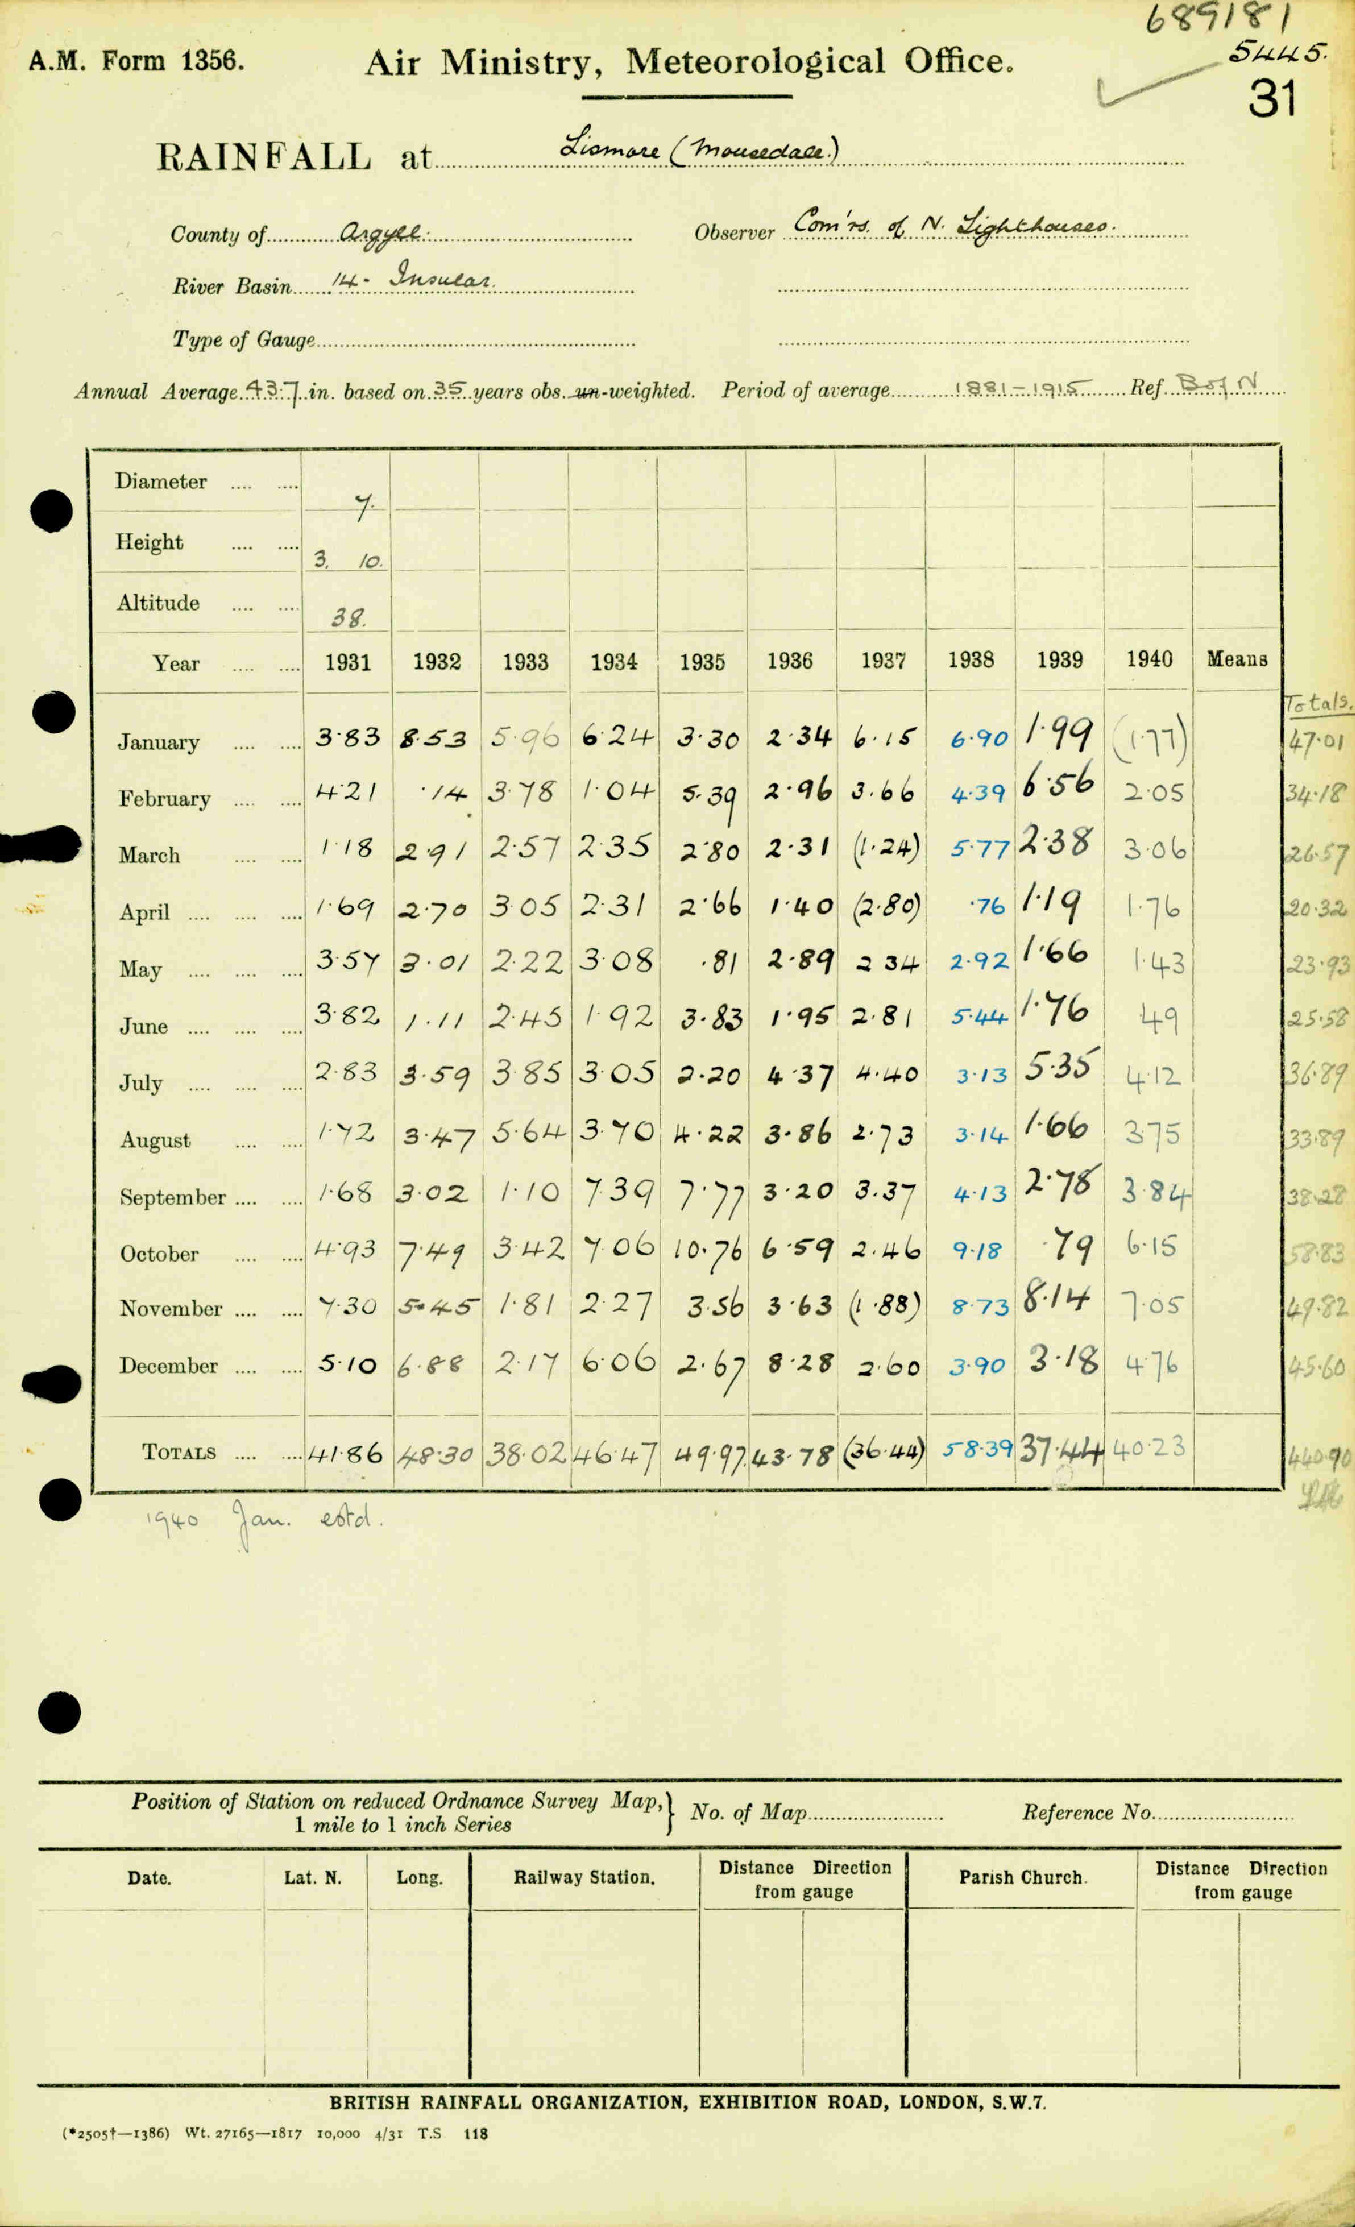 689181
A.M. Form 1356. Air Ministry, Meteorological Office. 5445.
31
RAINFALL at Lismore (Mousedale.)
County of Argyll. Observer Com'rs. of N. Lighthouses.
River Basin 14 - Insular.
Type of Gauge
Annual Average 43.7 in. based on 35 years obs. un-weighted. Period of average 1881-1915 Ref. B of N
Diameter .... .... 7.
Height .... .... 3. 10.
Altitude .... .... 38.
Year .... .... 1931 1932 1933 1934 1935 1936 1937 1938 1939 1940 Means
Totals.
January .... .... 3.83 8.53 5.96 6.24 3.30 2.34 6.15 6.90 1.99 (1.77) 47.01
February .... .... 4.21 .14 3.78 1.04 5.39 2.96 3.66 4.39 6.56 2.05 34.18
March .... .... 1.18 2.91 2.57 2.35 2.80 2.31 (1.24) 5.77 2.38 3.06 26.57
April .... .... .... 1.69 2.70 3.05 2.31 2.66 1.40 (2.80) .76 1.19 1.76 20.32
May .... .... .... 3.57 3.01 2.22 3.08 .81 2.89 2.34 2.92 1.66 1.43 23.93
June .... .... .... 3.82 1.11 2.45 1.92 3.83 1.95 2.81 5.44 1.76 49 25.58
July .... .... .... 2.83 3.59 3.85 3.05 2.20 4.37 4.40 3.13 5.35 4.12 36.89
August .... .... 1.72 3.47 5.64 3.70 4.22 3.86 2.73 3.14 1.66 3.75 33.89
September .... .... 1.68 3.02 1.10 7.39 7.77 3.20 3.37 4.13 2.78 3.84 38.28
October .... .... 4.93 7.49 3.42 7.06 10.76 6.59 2.46 9.18 .79 6.15 58.83
November .... .... 7.30 5.45 1.81 2.27 3.56 3.63 (1.88) 8.73 8.14 7.05 49.82
December .... .... 5.10 6.88 2.17 6.06 2.67 8.28 2.60 3.90 3.18 4.76 45.60
TOTALS .... .... 41.86 48.30 38.02 46.47 49.97 43.78 (36.44) 58.39 37.44 40.23 440.90
1940 Jan. estd.
Position of Station on reduced Ordnance Survey Map, } No. of Map Reference No.
1 mile to 1 inch Series
Date. Lat. N. Long. Railway Station. Distance Direction from gauge Parish Church. Distance Direction from gauge
BRITISH RAINFALL ORGANIZATION, EXHIBITION ROAD, LONDON, S.W.7.
(*2505†—1386) Wt. 27165—1817 10,000 4/31 T.S. 118